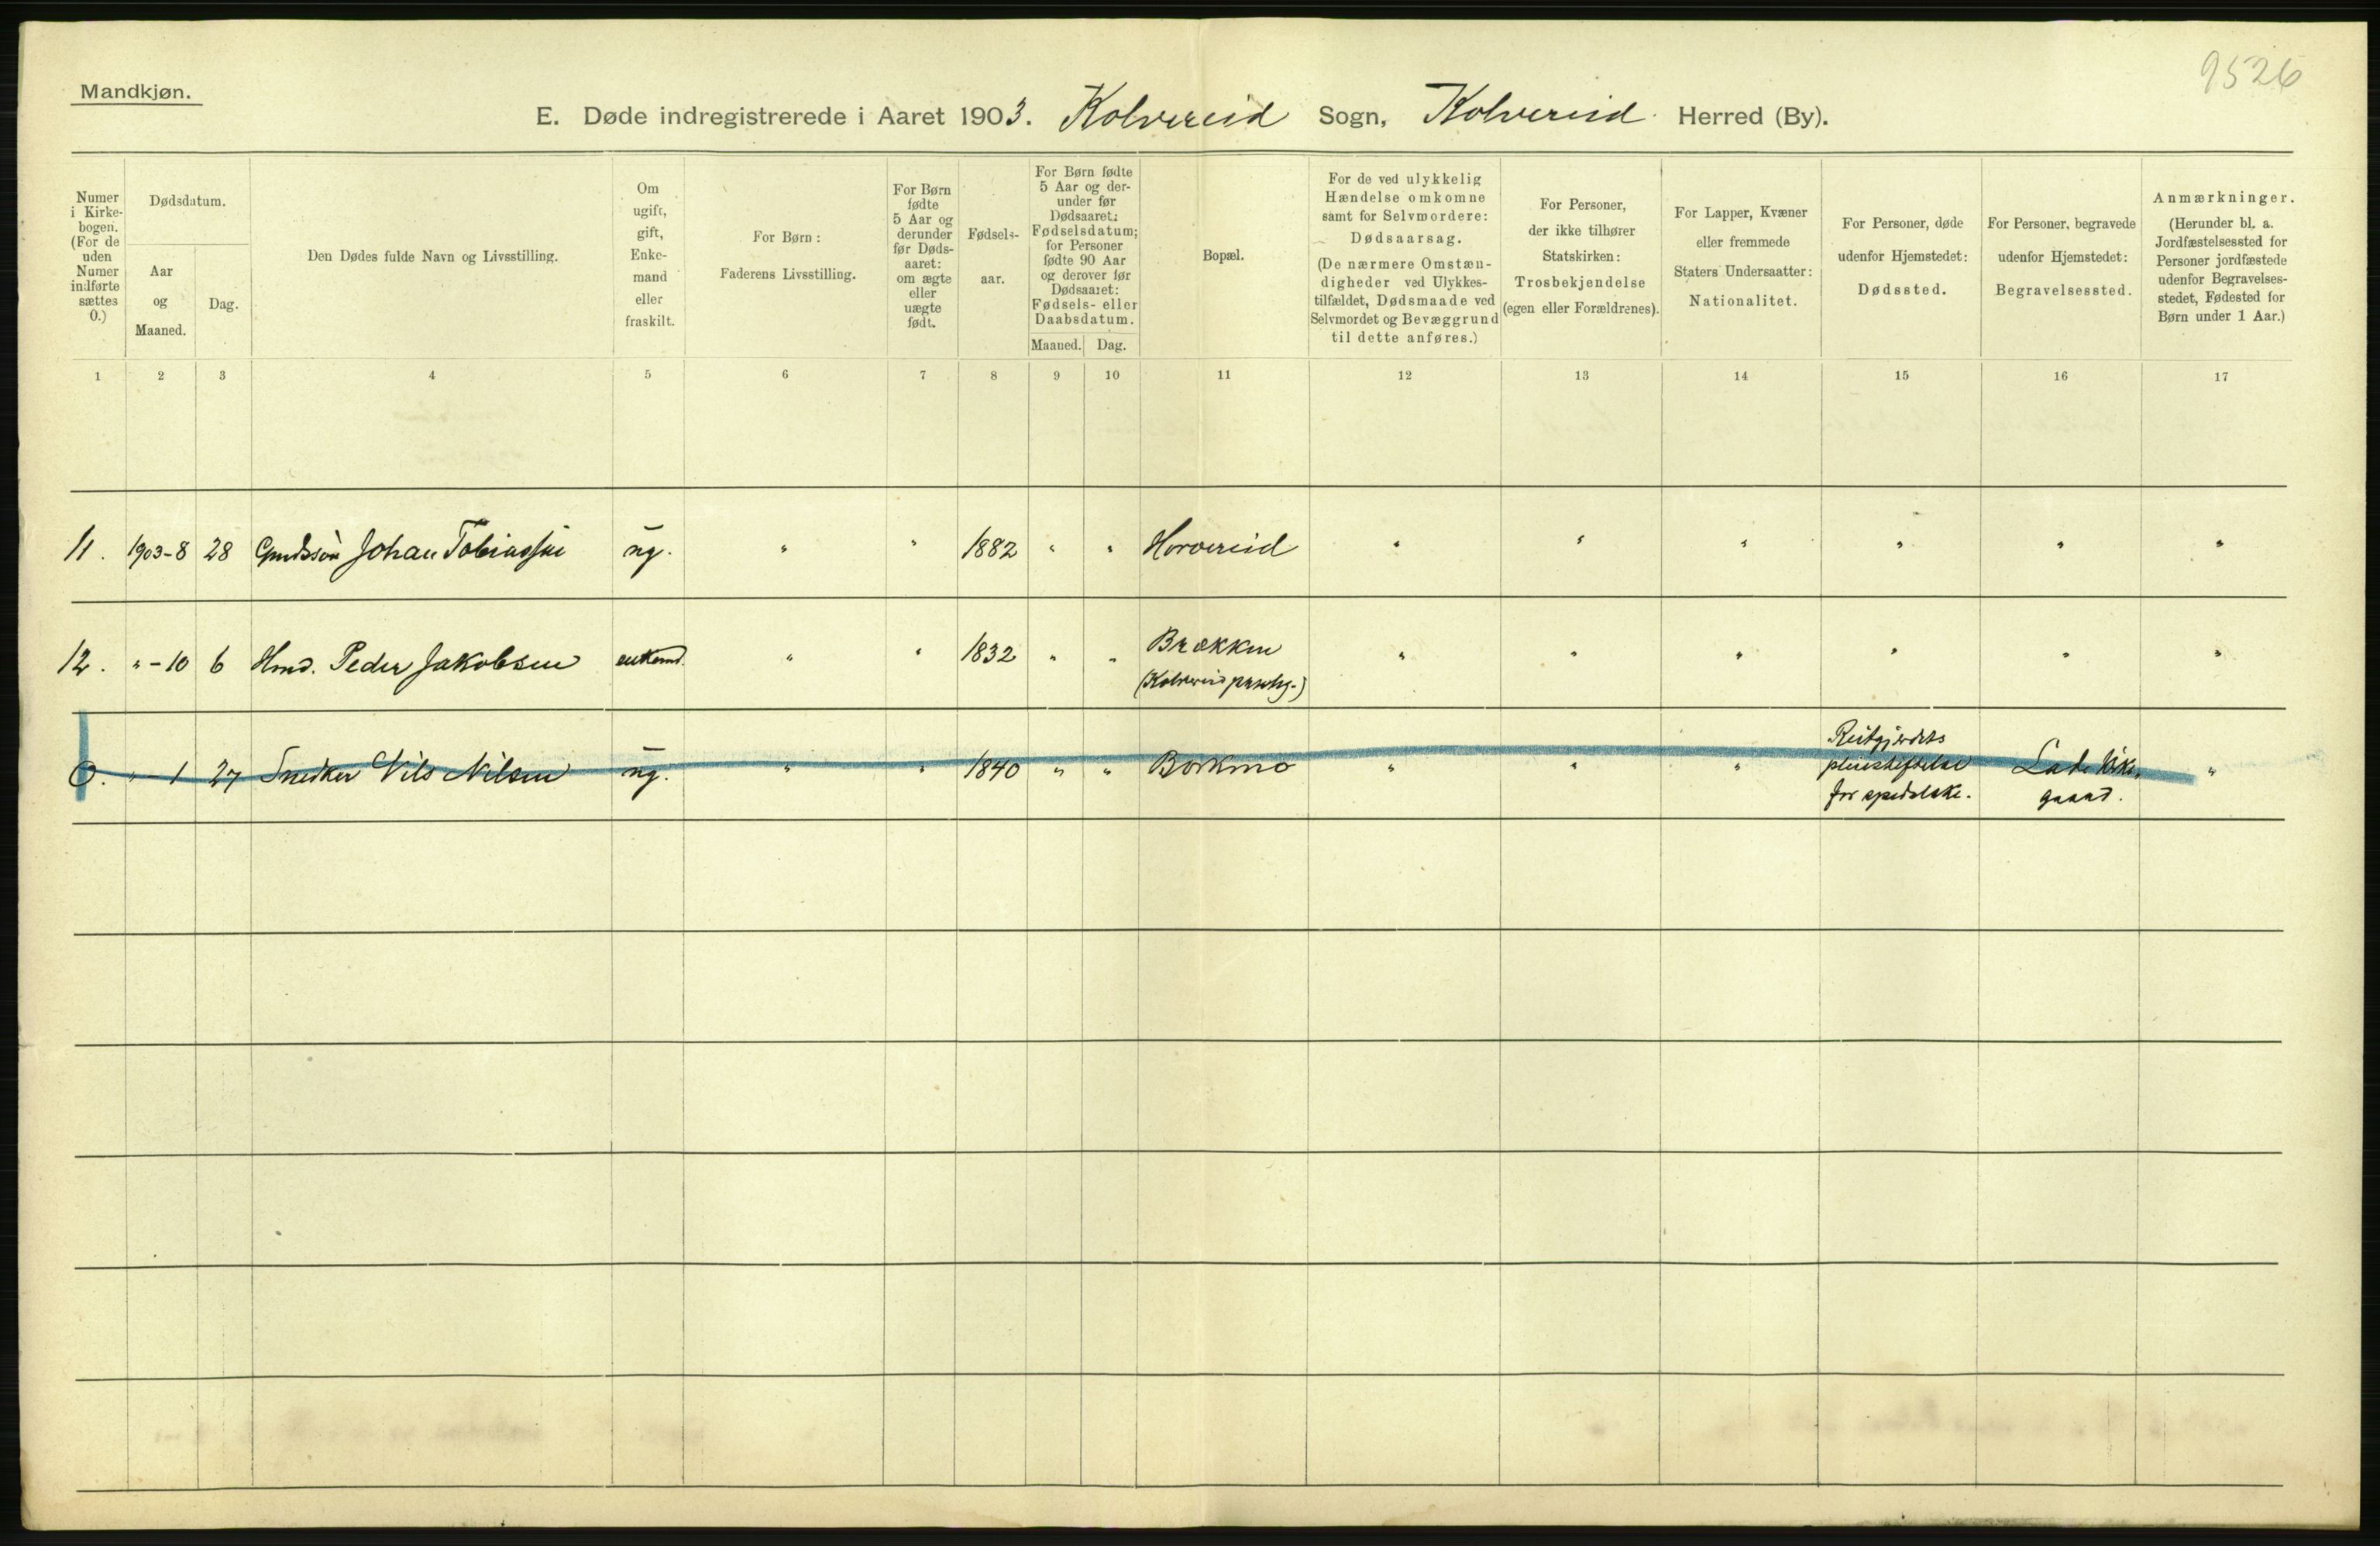 9526
Mandkjøn.
E. Døde indregistrerede i Aaret 1903. Kolvereid Sogn, Kolvereid Herred (By).
Numer i Kirke-bogen. (For de uden Numer indførte sættes 0.)
Dødsdatum.
Aar og Maaned.
Dag.
Den Dødes fulde Navn og Livsstilling.
Om ugift, gift, Enke-mand eller fraskilt.
For Børn:
Faderens Livsstilling.
For Børn fødte 5 Aar og derunder før Døds-aaret: om ægte eller uægte født.
Fødsels-aar.
For Børn fødte 5 Aar og der-under før Dødsaaret: Fødselsdatum; for Personer fødte 90 Aar og derover før Dødsaaret: Fødsels- eller Daabsdatum.
Maaned. Dag.
Bopæl.
For de ved ulykkelig Hændelse omkomne samt for Selvmordere: Dødsaarsag.
(De nærmere Omstæn-digheder ved Ulykkes-tilfældet, Dødsmaade ved Selvmordet og Bevæggrund til dette anføres.)
For Personer, der ikke tilhører Statskirken: Trosbekjendelse (egen eller Forældrenes).
For Lapper, Kvæner eller fremmede Staters Undersaatter: Nationalitet.
For Personer, døde udenfor Hjemstedet: Dødssted.
For Personer, begravede udenfor Hjemstedet: Begravelsessted.
Anmærkninger.
(Herunder bl. a. Jordfæstelsessted for Personer jordfæstede udenfor Begravelses-stedet, Fødested for Børn under 1 Aar.)
1 2 3 4 5 6 7 8 9 10 11 12 13 14 15 16 17
11. 1903-8 28 Gmdssøn Johan Tobiassen ug. " " 1882 " " Horvereid " " " " " "
12. " -10 6 Hmd. Peder Jakobsen enkemd. " " 1832 " " Brækken " " " " " "
(Kolvereid prestg.)
0. " -1 27 Snedker Nils Nilsen ug. " " 1840 " " Borkmo " " " Reitgjerdets pleiestiftelse for spedalske. Lade kirke-gaard. "